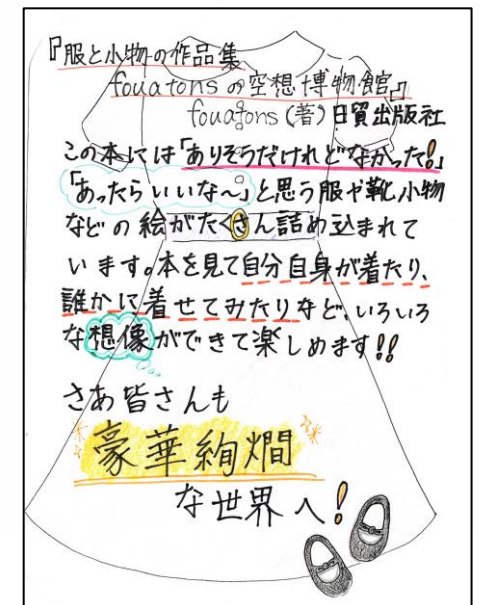 『服と小物の作品集
fouatonsの空想博物館』
fouatons(著)日貿出版社
この本には「ありそうだけれどなかった!」
「あったらいいな~」と思う服や靴、小物
などの絵がたくさん詰め込まれて
います。本を見て自分自身が着たり、
誰かに着せてみたりなど、いろいろ
な想像ができて楽しめます!!
さあ皆さんも
豪華絢爛
な世界へ!